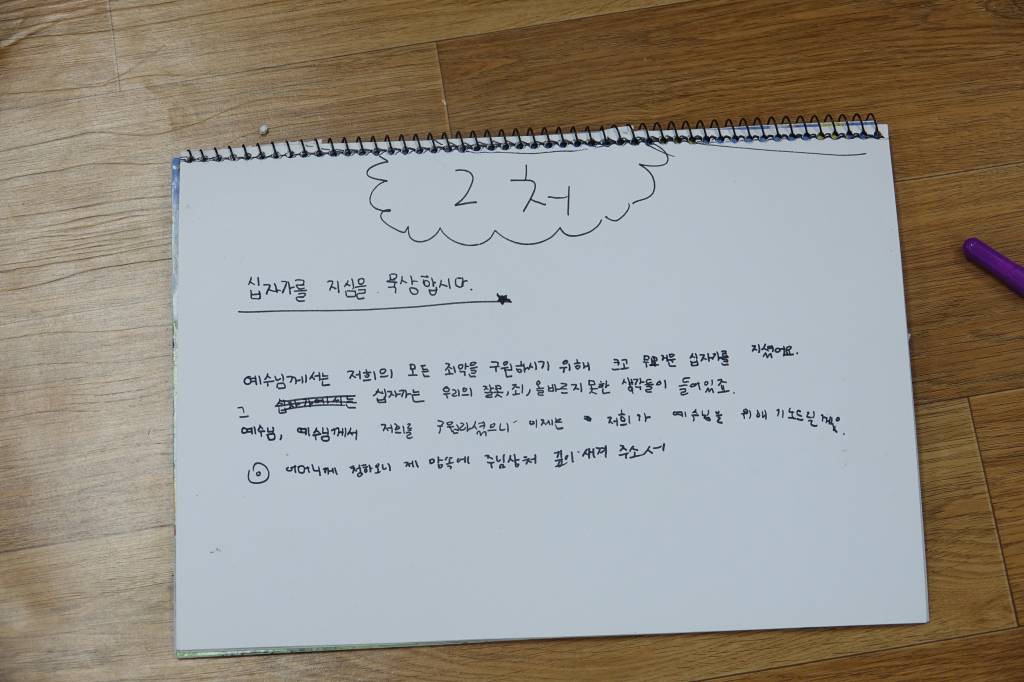 2 처
십자가를 지심을 묵상합시다.
예수님께서는 저희의 모든 죄악을 구원하시기 위해 크고 무거운 십자가를 지셨어요.
그 십자가는 우리의 잘못, 죄, 올바르지 못한 생각들이 들어있죠.
예수님, 예수님께서 저희를 구원하셨으니 이제는 저희가 예수님을 위해 기도드릴게요.
◎ 어머니께 청하오니 제 맘속에 주님상처 깊이 새겨 주소서